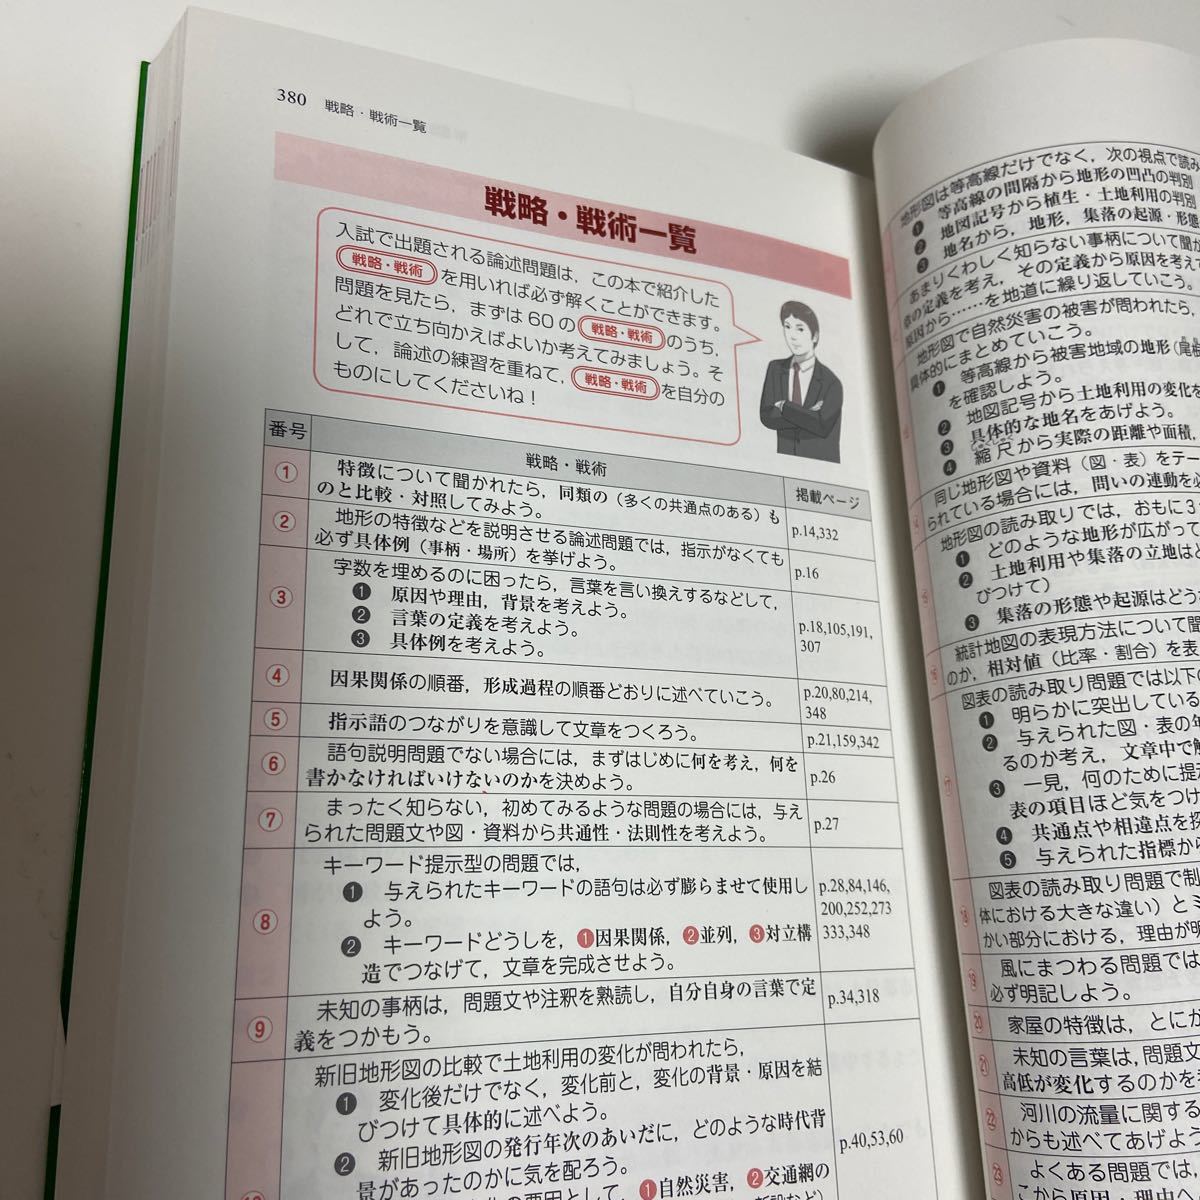 380 戦略・戦術一覧
戦略・戦術一覧
入試で出題される論述問題は，この本で紹介した
戦略・戦術 を用いれば必ず解くことができます。
問題を見たら，まずは60の 戦略・戦術 のうち，
どれで立ち向かえばよいか考えてみましょう。そ
して，論述の練習を重ねて， 戦略・戦術 を自分の
ものにしてくださいね！
番号 戦略・戦術 掲載ページ
① 特徴について聞かれたら，同類の（多くの共通点のある）も
のと比較・対照してみよう。 p.14,332
② 地形の特徴などを説明させる論述問題では，指示がなくても
必ず具体例（事柄・場所）を挙げよう。 p.16
③ 字数を埋めるのに困ったら，言葉を言い換えするなどして，
❶ 原因や理由，背景を考えよう。
❷ 言葉の定義を考えよう。
❸ 具体例を考えよう。
p.18,105,191,
307
④ 因果関係の順番，形成過程の順番どおりに述べていこう。 p.20,80,214,
348
⑤ 指示語のつながりを意識して文章をつくろう。 p.21,159,342
⑥ 語句説明問題でない場合には，まずはじめに何を考え，何を
書かなければいけないのかを決めよう。 p.26
⑦ まったく知らない，初めてみるような問題の場合には，与え
られた問題文や図・資料から共通性・法則性を考えよう。 p.27
⑧ キーワード提示型の問題では，
❶ 与えられたキーワードの語句は必ず膨らませて使用し
よう。
❷ キーワードどうしを，❶因果関係，❷並列，❸対立構
造でつなげて，文章を完成させよう。
p.28,84,146,
200,252,273
333,348
⑨ 未知の事柄は，問題文や注釈を熟読し，自分自身の言葉で定
義をつかもう。 p.34,318
新旧地形図の比較で土地利用の変化が問われたら，
❶ 変化後だけでなく，変化前と，変化の背景・原因を結
びつけて具体的に述べよう。
❷ 新旧地形図の発行年次のあいだに，どのような時代背
景があったのかに気を配ろう。
p.40,53,60
の要因として，❶自然災害，❷交通網の
地形図は等高線だけでなく，次の視点で読み
❶ 等高線の間隔から地形の凹凸の判別
❷ 地図記号から植生・土地利用の判別
❸ 地名から，地形，集落の起源・形態
あまりくわしく知らない事柄について聞か
章の定義を考え，その定義から原因を考えて
原因から……を地道に繰り返していこう。
地形図で自然災害の被害が問われたら，
具体的にまとめていこう。
❶ 等高線から被害地域の地形（尾根
を確認しよう。
❷ 地図記号から土地利用の変化を
❸ 具体的な地名をあげよう。
❹ 縮尺から実際の距離や面積，
同じ地形図や資料（図・表）をテー
られている場合には，問いの連動を必
地形図の読み取りでは，おもに3
❶ どのような地形が広がって
❷ 土地利用や集落の立地はど
びつけて）
❸ 集落の形態や起源はどう
統計地図の表現方法について聞
のか，相対値（比率・割合）を表
図表の読み取り問題では以下の
❶ 明らかに突出している
❷ 与えられた図・表の年
るのか考え，文章中で解
❸ 一見，何のために提示
表の項目ほど気をつけ
❹ 共通点や相違点を探
❺ 与えられた指標から
⑱ 図表の読み取り問題で制
体における大きな違い）とミ
かい部分における，理由が明
⑲ 風にまつわる問題では
必ず明記しよう。
⑳ 家屋の特徴は，とにか
㉑ 未知の言葉は，問題文
高低が変化するのかを
㉒ 河川の流量に関する
からも述べてあげよう
㉓ よくある問題では，